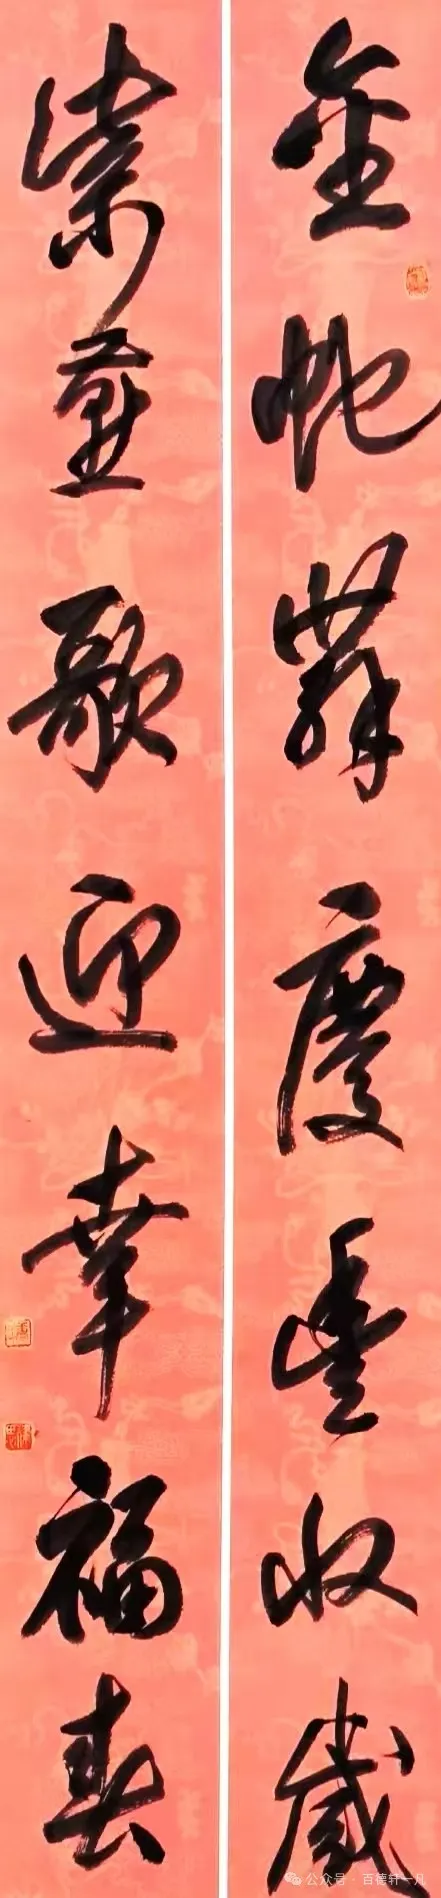 金蛇舞庆丰收岁
紫燕歌迎幸福春
公众号·百德轩一凡